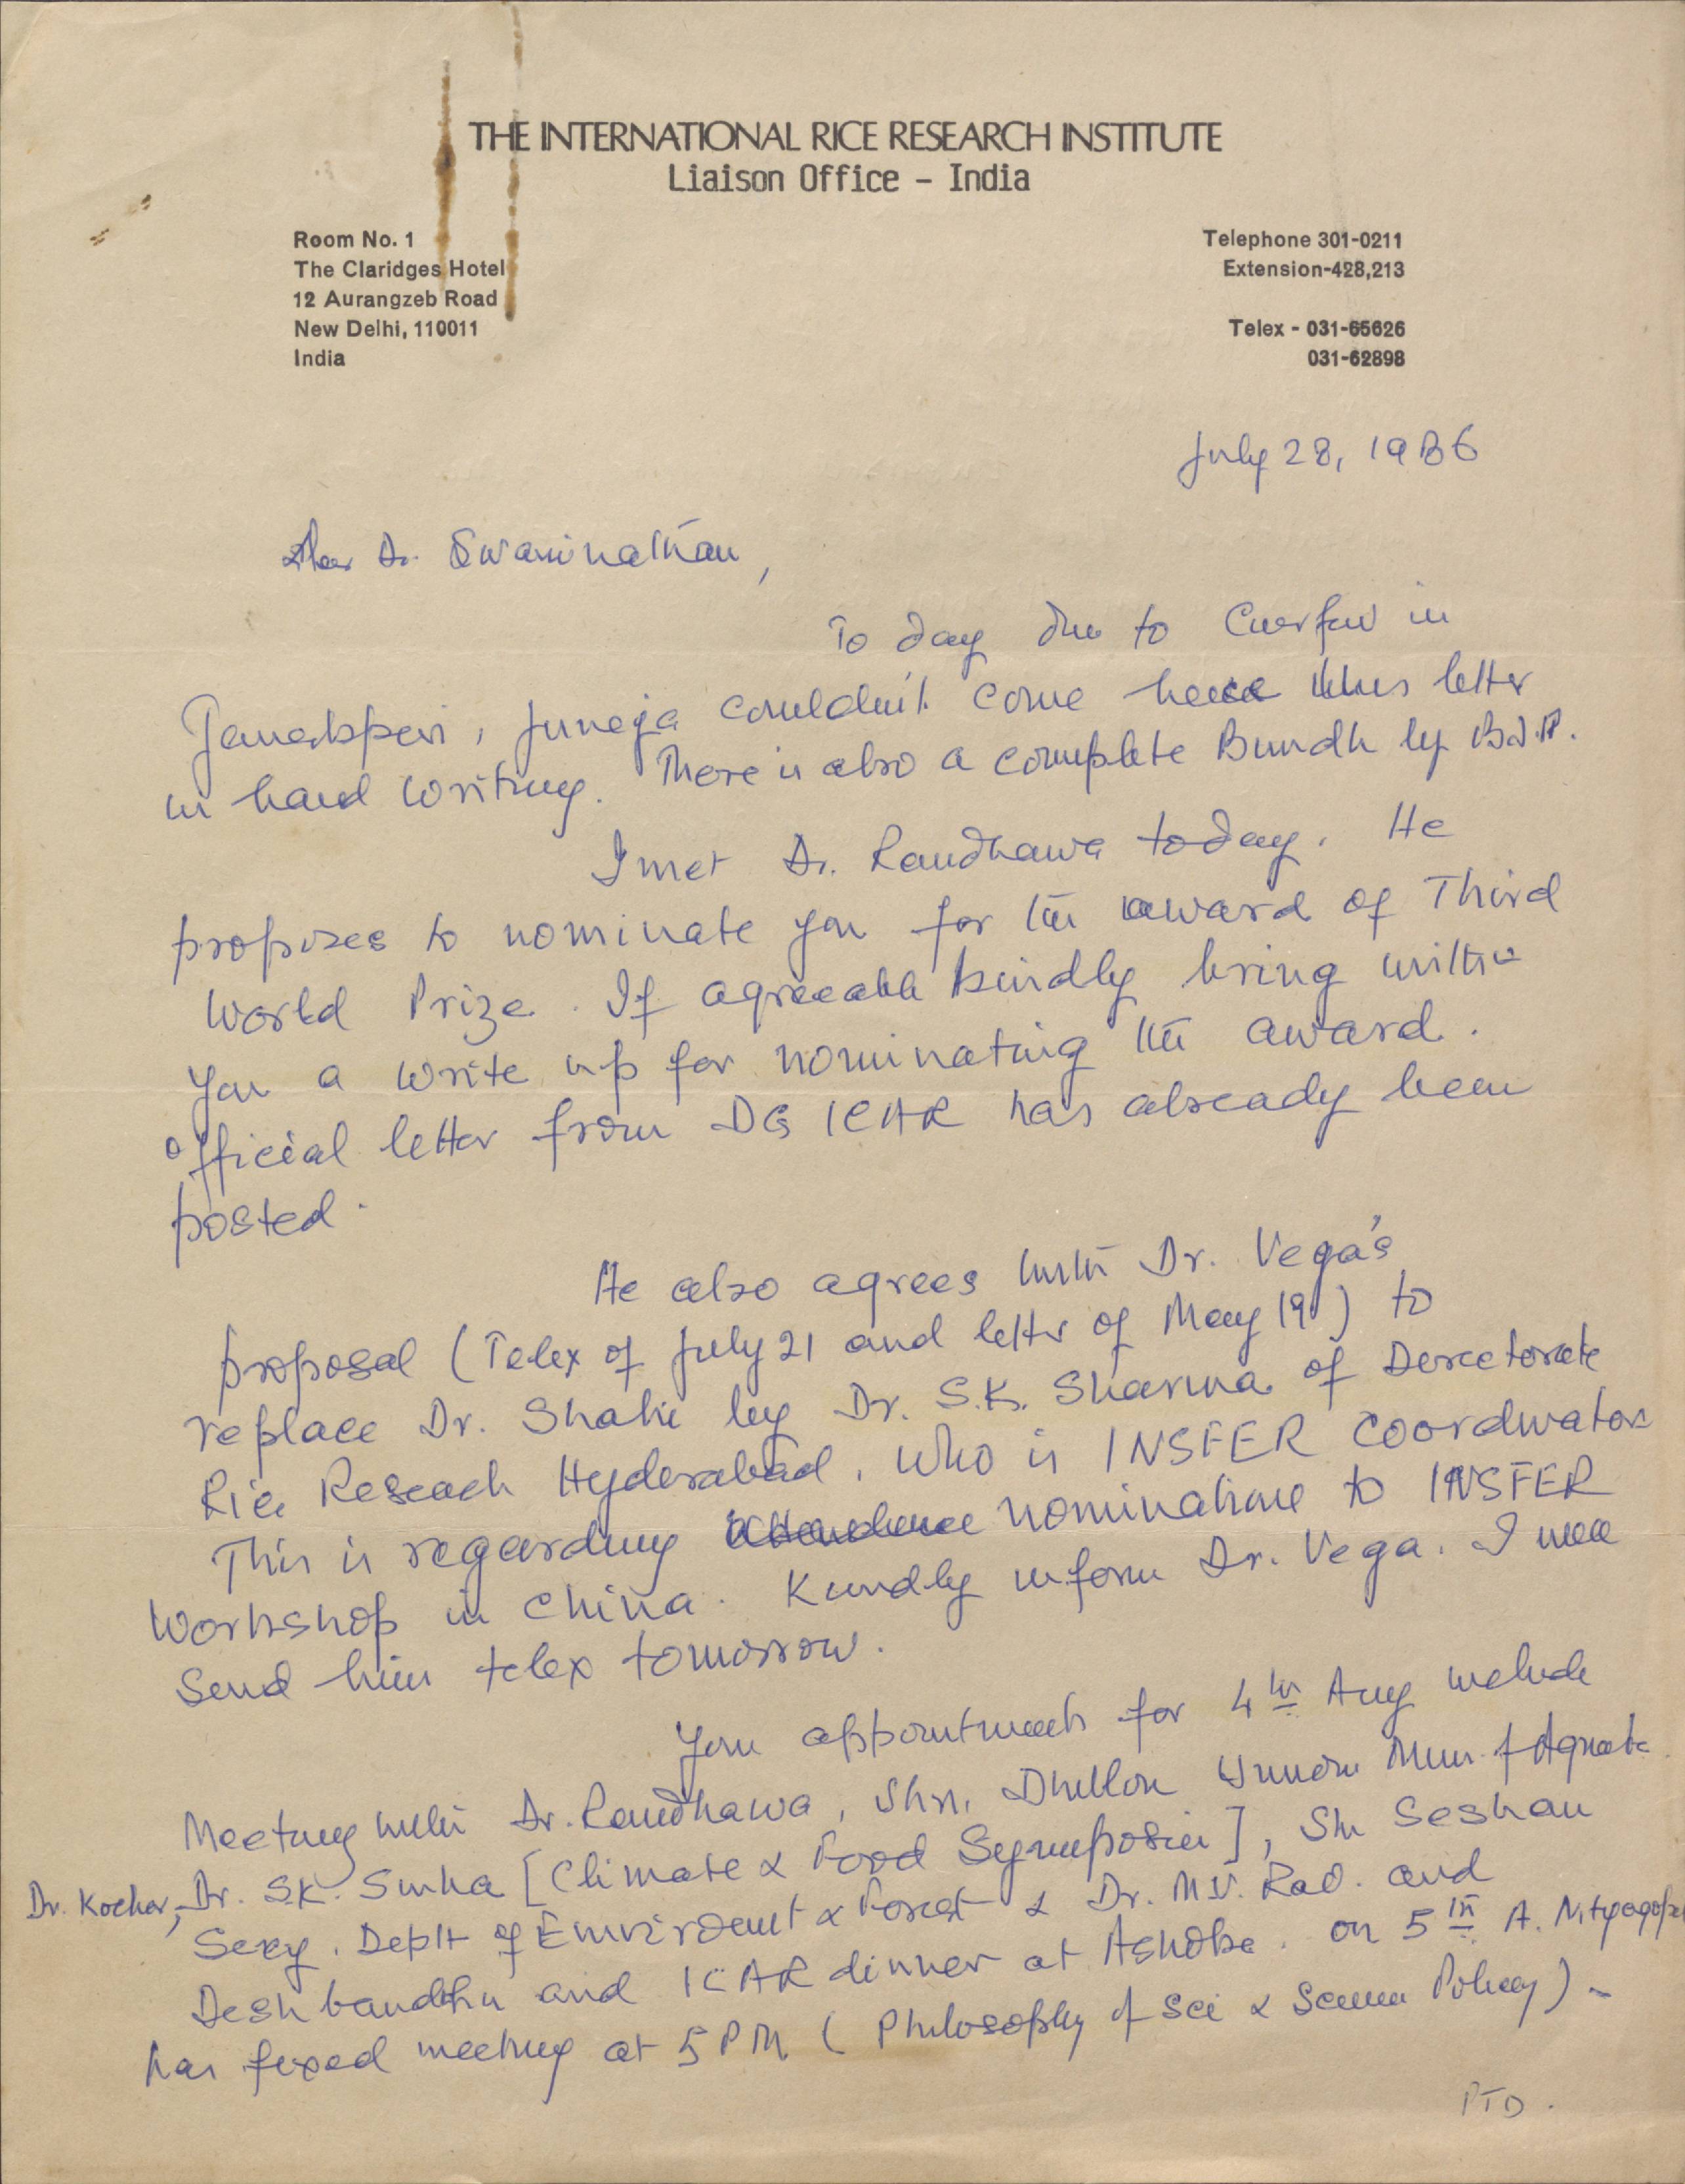 THE INTERNATIONAL RICE RESEARCH INSTITUTE
Liaison Office - India
Room No. 1
The Claridges Hotel
12 Aurangzeb Road
New Delhi, 110011
India
Telephone 301-0211
Extension-428,213
Telex - 031-65626
031-62898
July 28, 1986
Dear Dr. Swaminathan,
To day due to Curfew in
Janakpuri, Juneja couldn't come hence this letter
in hand writing. There is also a complete Bundh by BJP.
I met Dr. Randhawa today. He
proposes to nominate you for the award of Third
World Prize. If agreeable kindly bring with
you a write up for nominating the award.
Official letter from DG ICAR has already been
posted.
He also agrees with Dr. Vega's
proposal (Telex of July 21 and letter of May 19) to
replace Dr. Shahi by Dr. S.K. Sharma of Directorate
Rice Reseach Hyderabad, who is INSFER Coordinator
This is regarding nominations to INSFER
Workshop in China. Kindly inform Dr. Vega. I will
Send him telex tomorrow.
Your appointments for 4th Aug include
Meeting with Dr. Randhawa, Shri. Dhillon Union Min. of
Dr. Kochar, Dr. S.K. Sinha [Climate & Food Symposia], Sh Seshan
Secy. Deptt of & Forest & Dr. M.V. Rao. and
Desh bandhu and ICAR dinner at Ashoka. on 5th A. Nityagopal
has fixed meeting at 5 PM (Philosophy of Sci & Science Policy) -
PTO.